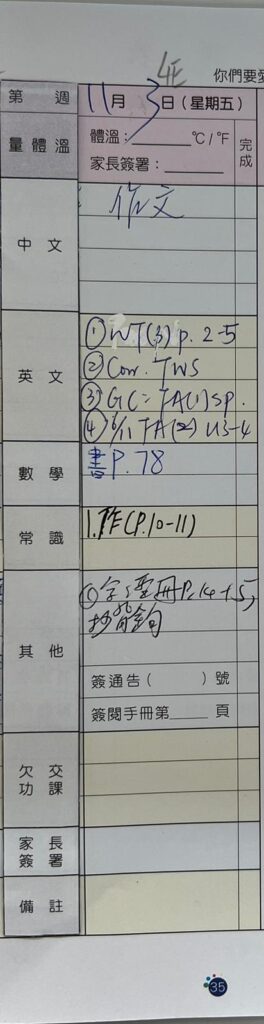 4E
你們要愛
第 週
11月3日(星期五)
量體溫
體溫:______°C/°F
家長簽署:______
完成
中文
作文
英文
① WT(3) p. 2-5
② Corr. TWS
③ GC: TA(1) SP.
④ 6/11 TA(2) U3-4
數學
書P. 78
常識
1.作(P.10-11)
其他
冊P.14+15,
簽通告( )號
簽閱手冊第____頁
欠交功課
家長簽署
備註
35